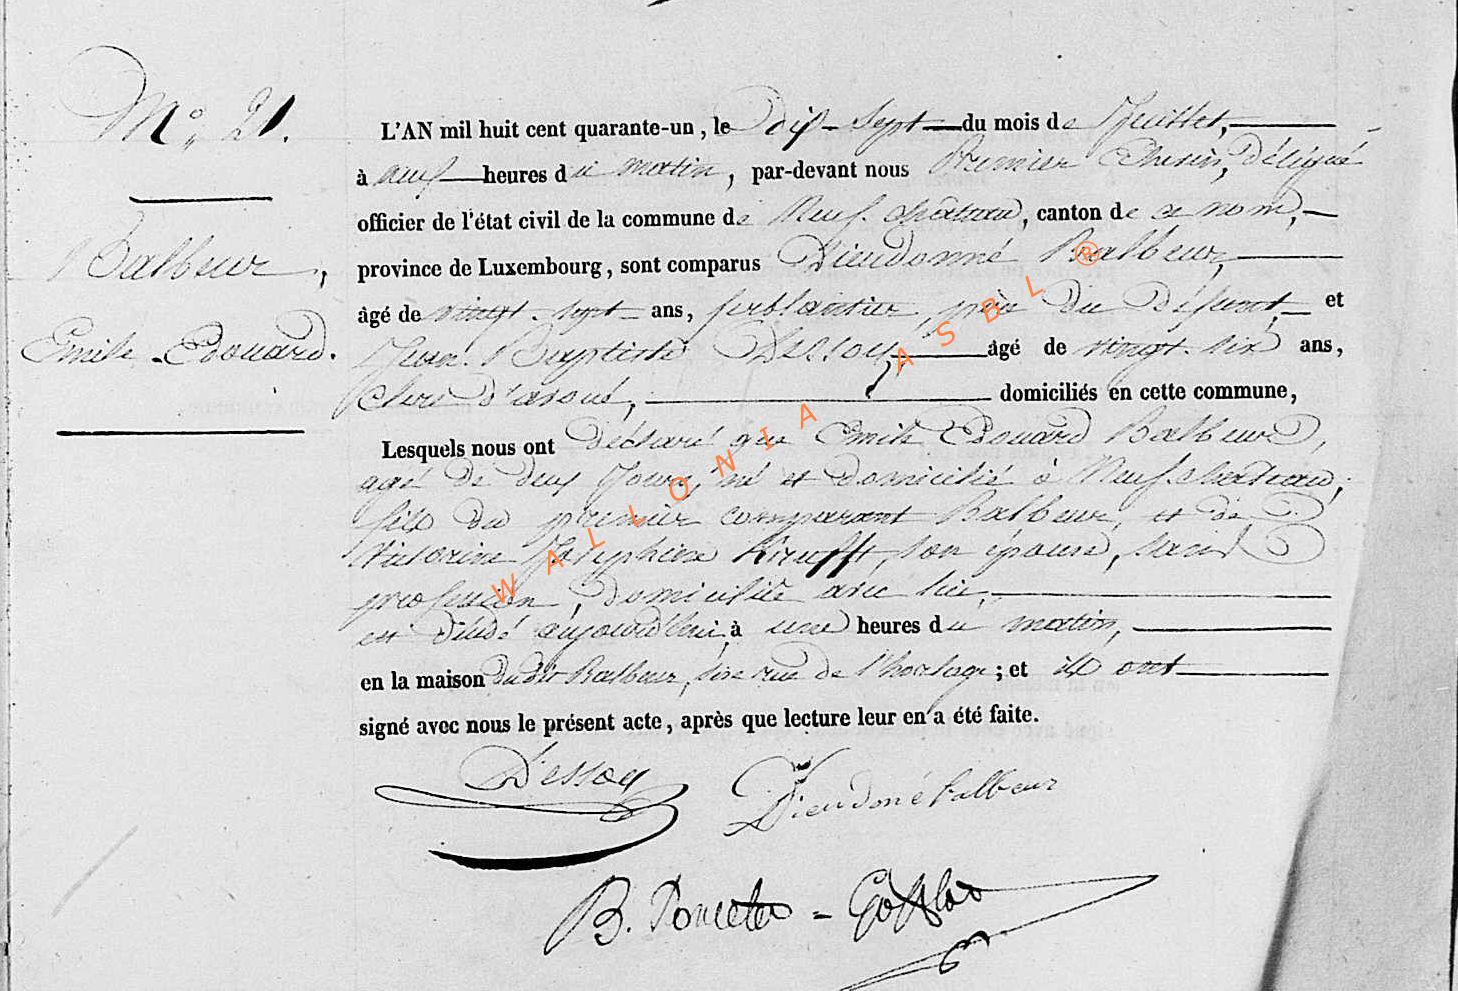 N.° 21.
Balbeur,
Emile Edouard.
L'AN mil huit cent quarante-un, le dix-Sept du mois de Juillet,
à neuf heures du matin, par-devant nous Premier Echevin, Délégué
officier de l'état civil de la commune de Neufchâteau, canton de ce nom,
province de Luxembourg, sont comparus Dieudonné Balbeur,
âgé de vingt-sept ans, ferblantier, père du Défunt, et
Jean Baptiste Dessoy, âgé de vingt-six ans,
Clerc d'avoué, domiciliés en cette commune,
Lesquels nous ont déclaré que Emile Edouard Balbeur,
agé de deux Jours, né et domicilié à Neufchateau,
fils du premier comparant Balbeur, et de
Victorine Josephine son épouse, sans
profession, domiciliée avec lui,
est décédé aujourd'hui, à une heures du matin,
en la maison dudit Balbeur, sise rue de l'horloge; et ils ont
signé avec nous le présent acte, après que lecture leur en a été faite.
Dessoy
Dieudoné Balbeur
B. Poncelet -
WALLONIA ASBL ®